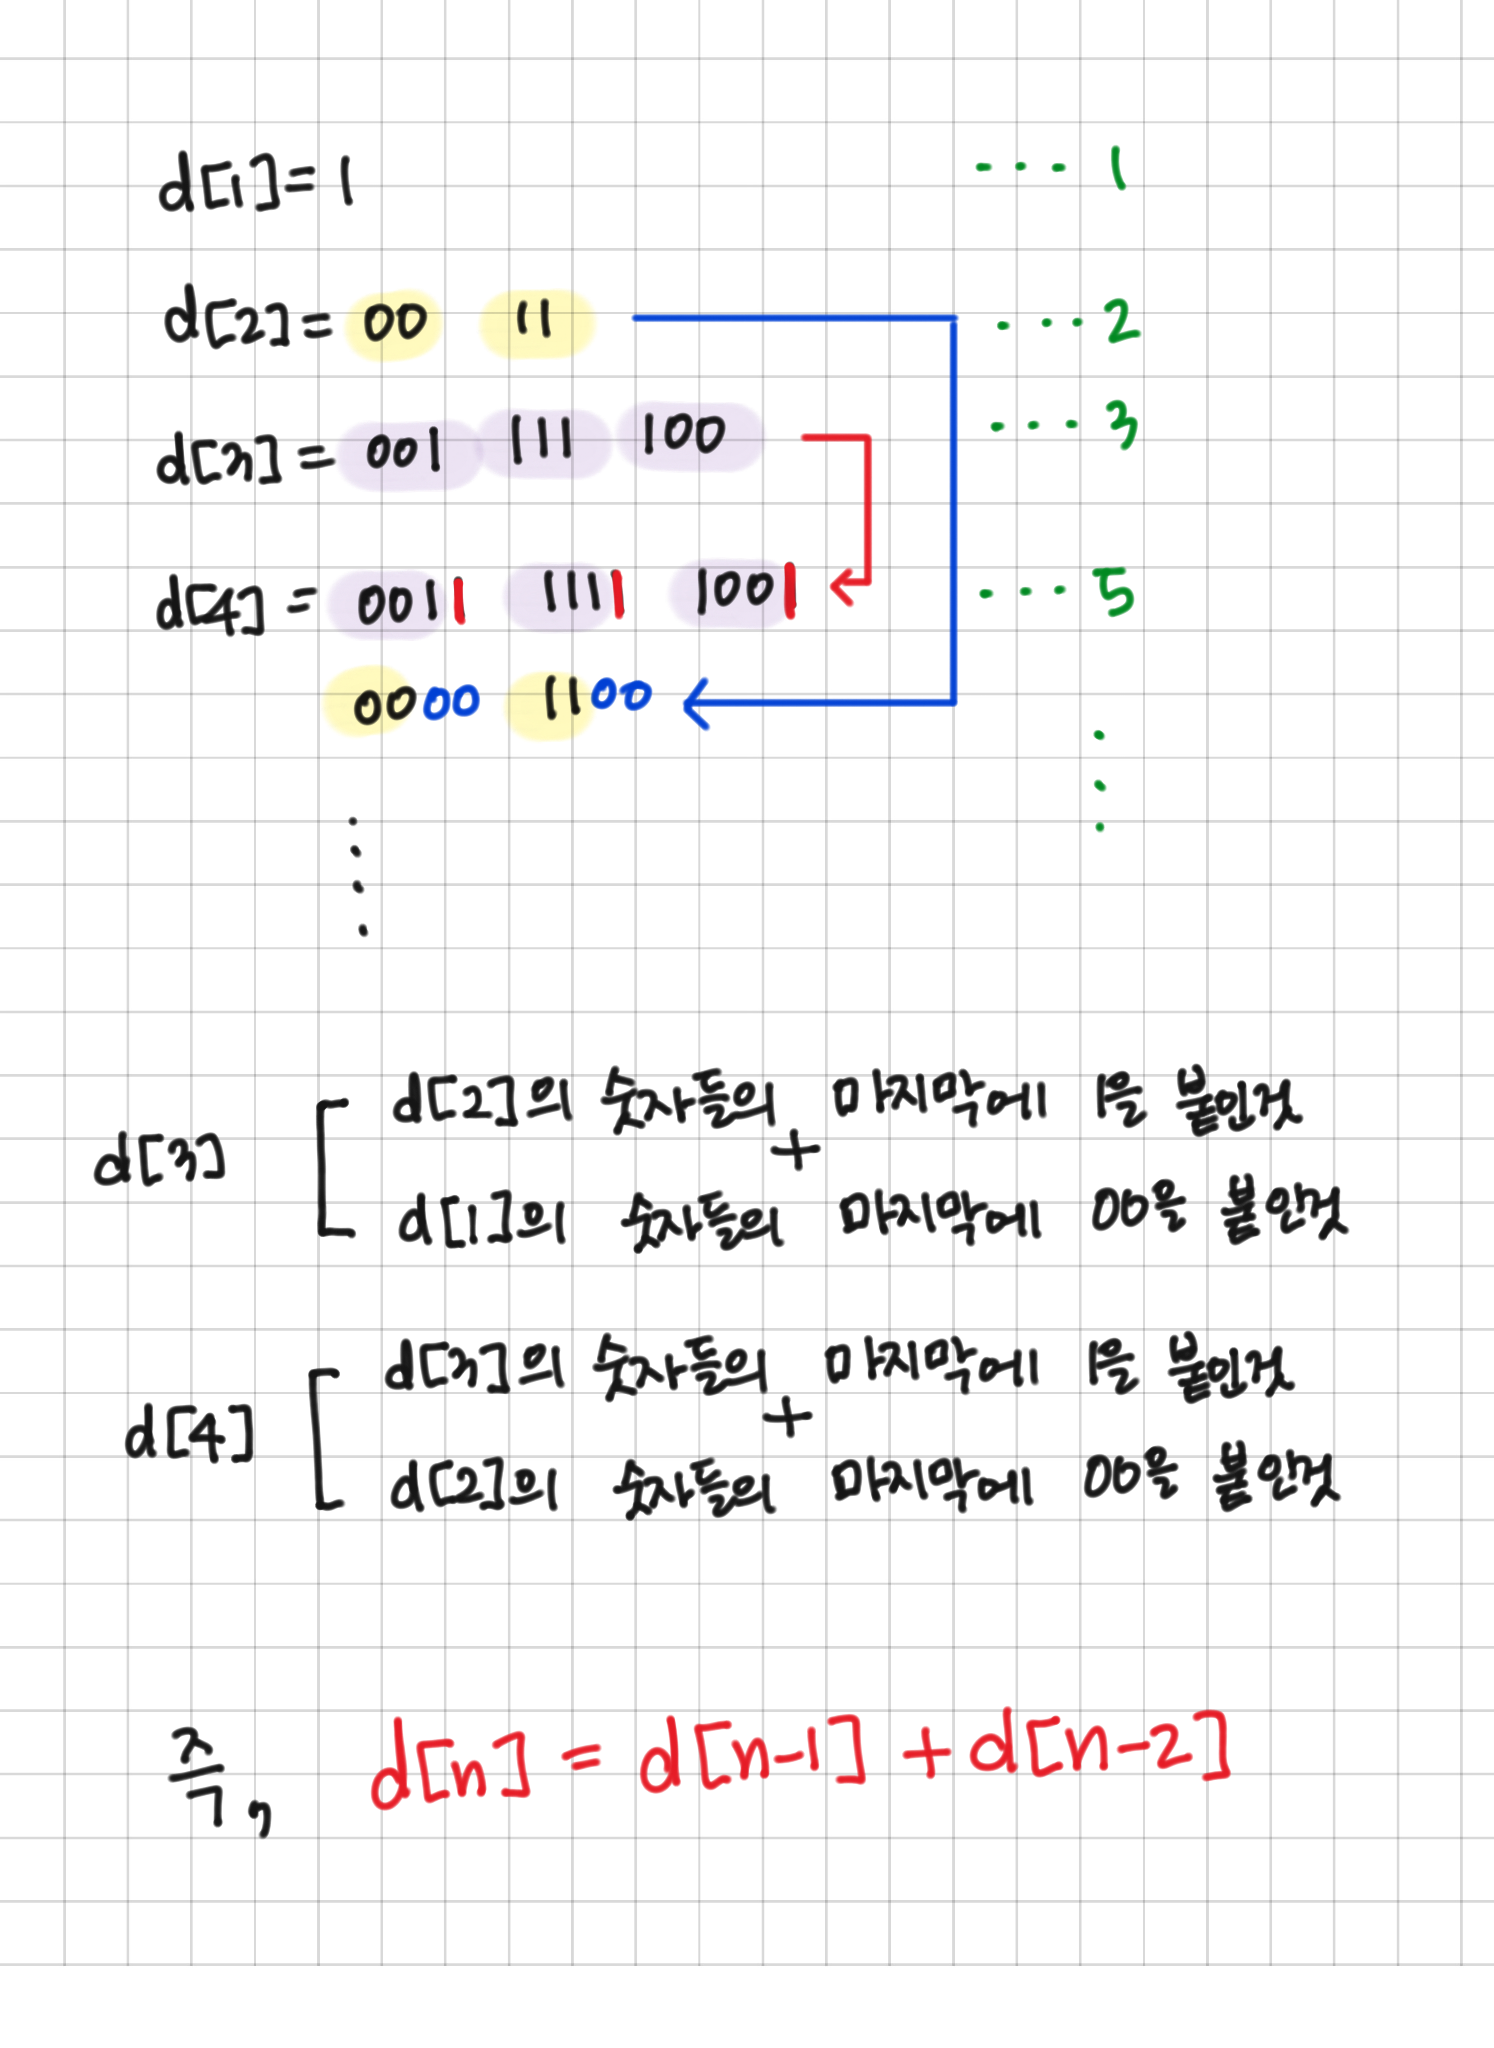 d[1]= 1 ... 1
d[2]= 00 11 ... 2
d[3]= 001 111 100 ... 3
d[4]= 0011 1111 1001 ... 5
0000 1100
d[2]의 숫자들의 마지막에 1을 붙인것
d[3] +
d[1]의 숫자들의 마지막에 00을 붙인것
d[3]의 숫자들의 마지막에 1을 붙인것
d[4] +
d[2]의 숫자들의 마지막에 00을 붙인것
즉, d[n] = d[n-1] + d[n-2]